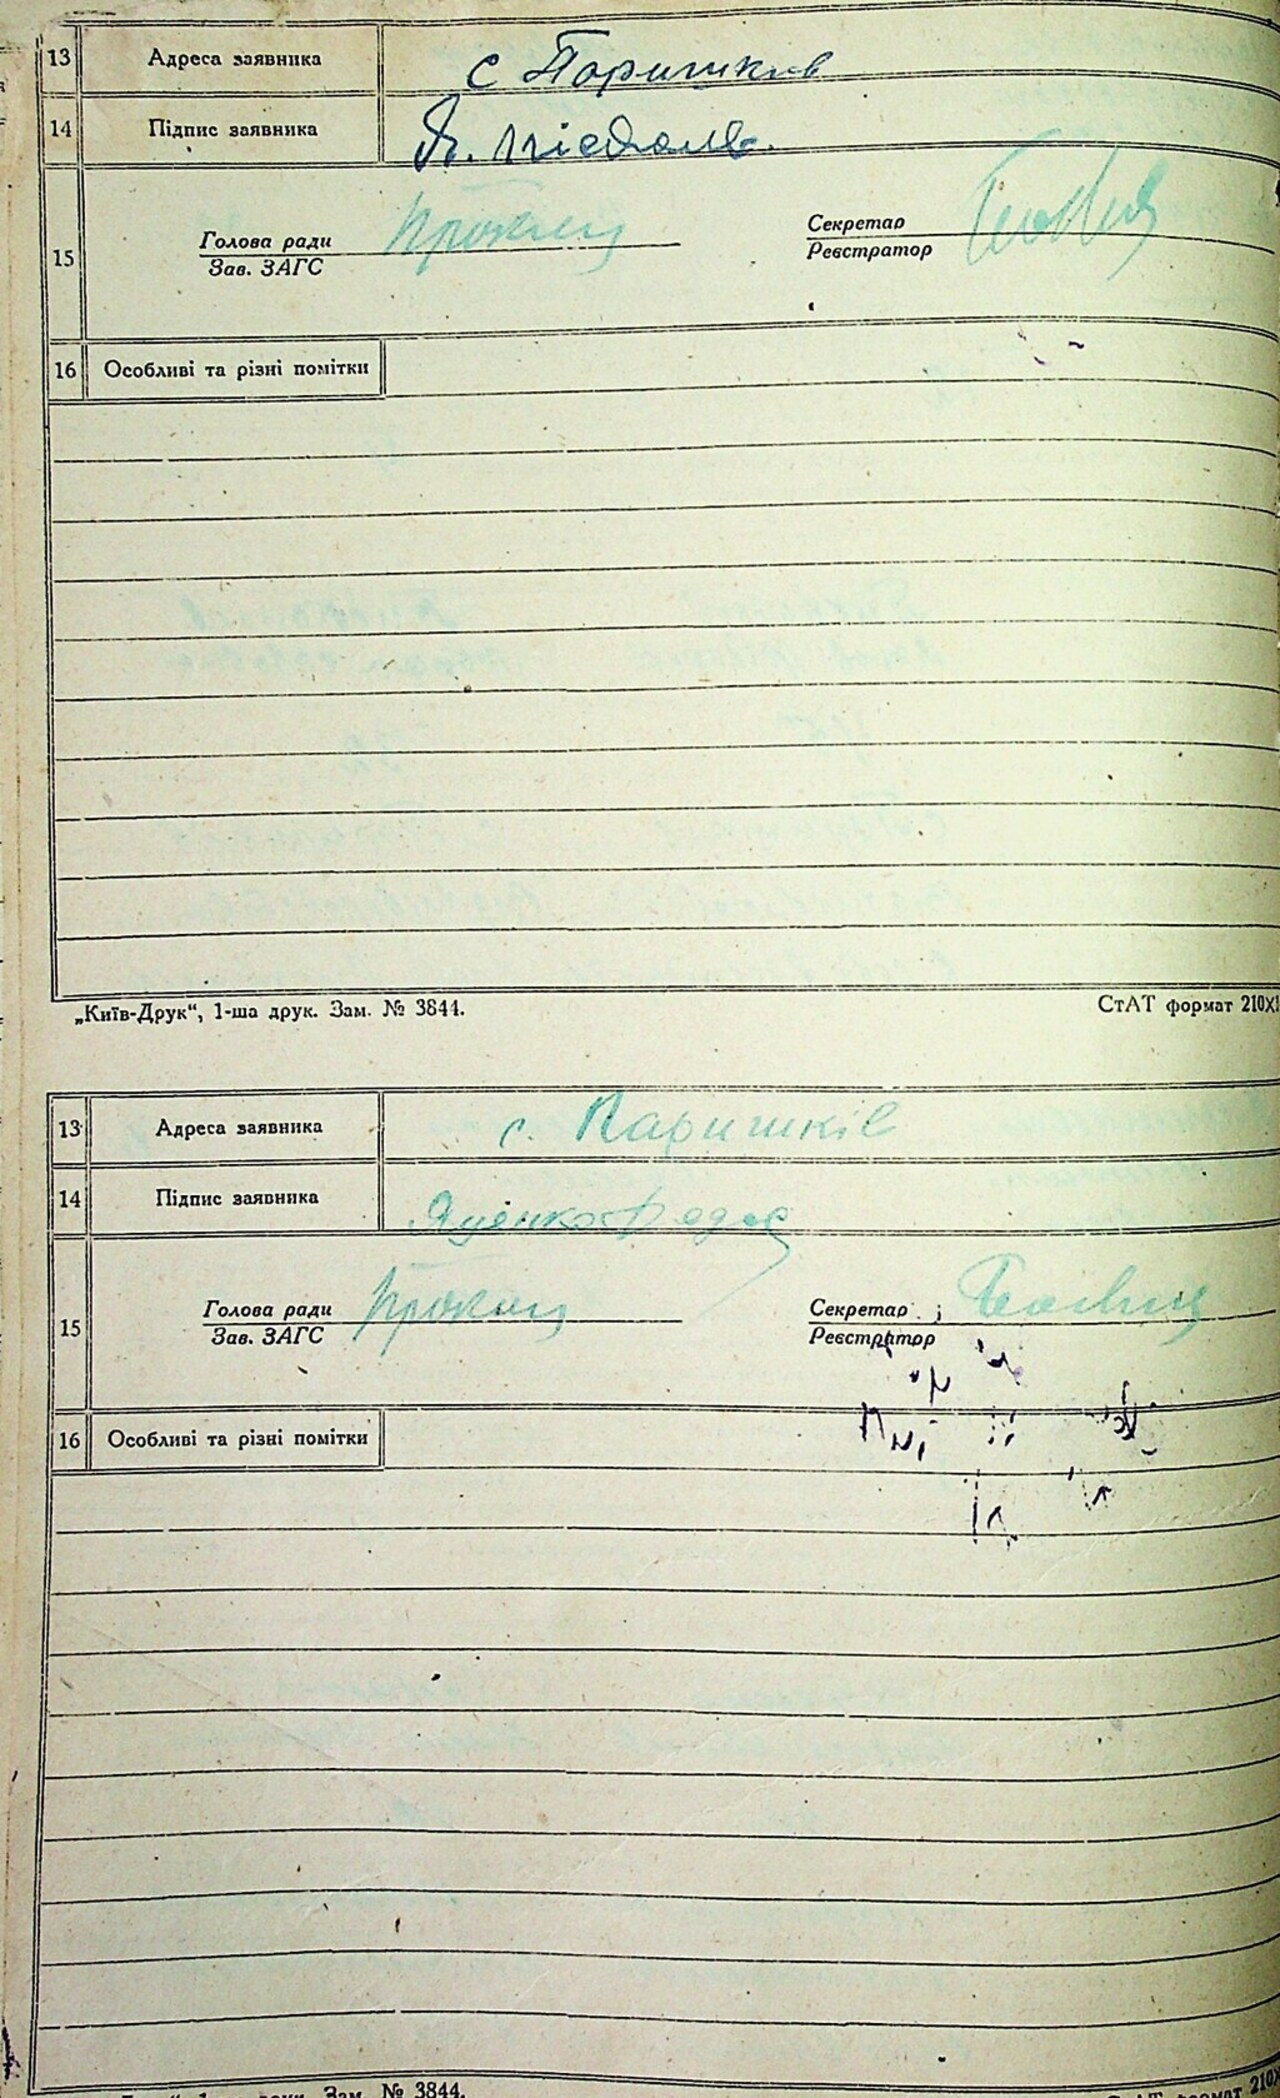 13 Адреса заявника с Паришків
14 Підпис заявника
15 Голова ради
Зав. ЗАГС
Секретар
Реєстратор
16 Особливі та різні помітки
„Київ-Друк“, 1-ша друк. Зам. № 3844. СтАТ формат 210X
13 Адреса заявника с. Паришків
14 Підпис заявника Яценко Федос
15 Голова ради
Зав. ЗАГС
Секретар
Реєстратор
16 Особливі та різні помітки
Зам. № 3844. формат 210X